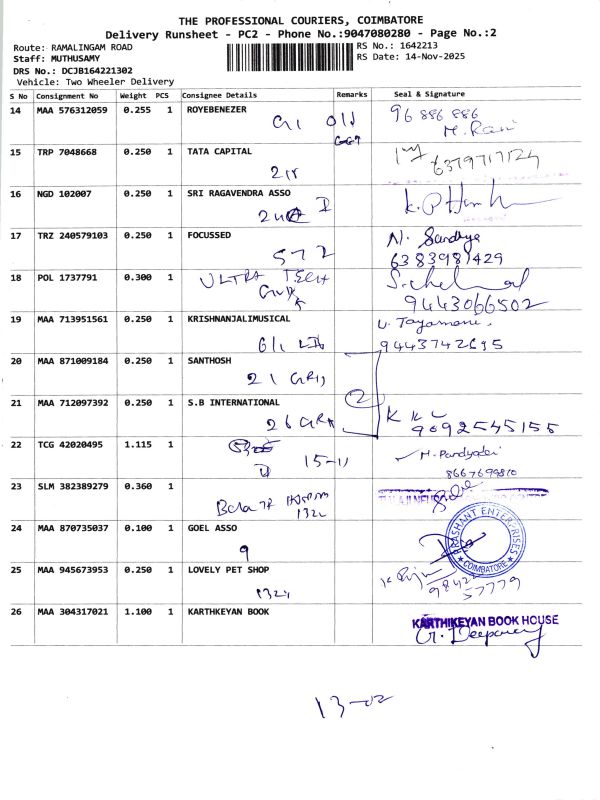 THE PROFESSIONAL COURIERS, COIMBATORE
Delivery Runsheet - PC2 - Phone No.:9047080280 - Page No.:2
Route: RAMALINGAM ROAD RS No.: 1642213
Staff: MUTHUSAMY RS Date: 14-Nov-2025
DRS No.: DCJB164221302
Vehicle: Two Wheeler Delivery
S No Consignment No Weight PCS Consignee Details Remarks Seal & Signature
14 MAA 576312059 0.255 1 ROYEBENEZER 96 886 886
old M. Rani
15 TRP 7048668 0.250 1 TATA CAPITAL
6379717124
16 NGD 102007 0.250 1 SRI RAGAVENDRA ASSO
17 TRZ 240579103 0.250 1 FOCUSSED N. Sandhya
572 6383981429
18 POL 1737791 0.300 1 ULTRA TECH
9443066502
19 MAA 713951561 0.250 1 KRISHNANJALIMUSICAL
9443742695
20 MAA 871009184 0.250 1 SANTHOSH
21
21 MAA 712097392 0.250 1 S.B INTERNATIONAL 2
26 9092545155
22 TCG 42020495 1.115 1
15-11 8667699810
23 SLM 382389279 0.360 1
132
24 MAA 870735037 0.100 1 GOEL ASSO
9 PRASHANT ENTERPRISES COIMBATORE
25 MAA 945673953 0.250 1 LOVELY PET SHOP
57779
26 MAA 304317021 1.100 1 KARTHKEYAN BOOK
KARTHIKEYAN BOOK HOUSE
13-02